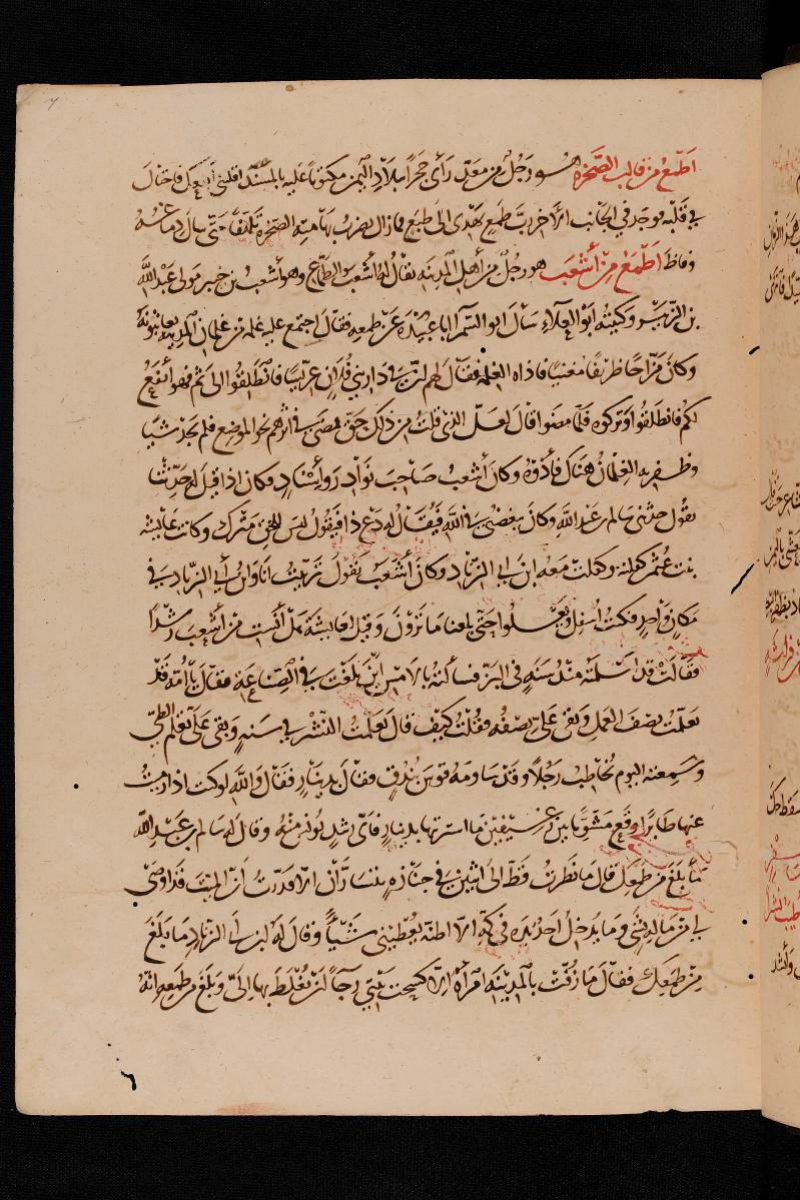 اطمع من قالب الصخرة هو رجل من معد رأى حجرا ببلاد اليمن مكتوبا عليه بالمسند اقلبني انفعك فاحتال
في قلبه فوجد في الجانب الآخر رب طمع يهدي الى طبع فما زال يضرب بهامته الصخرة تلهفا حتى سال دماغه
وفاظ اطمع من أشعب هو رجل من أهل المدينه يقال له أشعب الطماع وهو أشعب بن جبير مولى عبد الله
بن الزبير وكنيته ابو العلاء سأل ابو السمراء ابا عبيدة عن طمعه فقال اجتمع عليه غلمة من غلمان المدينه يعابثونه
وكان مزاحا ظريفا مغنيا فاذاه الغلمه فقال لهم ان في دار بني فلان عرسا فانطلقوا الى ثم فهو أنفع
لكم فانطلقوا وتركوه فلما مضوا قال لعل الذي قلت من ذلك حق فمضى في اثرهم نحو الموضع فلم يجد شيا
وظفر به الغلمان هناك فأذوه وكان أشعب صاحب نوادر وأسناد وكان اذا قيل له حدثنا
يقول حدثني سالم بن عبد الله وكان يبغضني في الله فيقال له دع ذا فيقول ليس للحق مترك وكانت عايشه
بنت عثمن كفلته وكفلت معه ابن ابي الزناد وكان أشعب يقول تربيت انا وابن أبي الزناد في
مكان واحد فكنت أسفل ويعلوا حتى بلغنا ما ترون وقيل لعايشة هل آنست من أشعب رشدا
فقالت قد اسلمته منذ سنه في البز فسألته بالامس اين بلغت في الصناعة فقال يا أمه قد
تعلمت نصف العمل وبقي علي نصفه فقلت كيف قال تعلمت النشر في سنه وبقي علي تعلم الطي
وسمعته اليوم تخاطب رجلا وقد ساومه قوس بندق فقال بدينار فقال والله لو كنت اذا رميت
عنها طايرا وقع مشويا بين رغيفين ما اشتريتها بدينار فاى رشد يونس منه وقال له سالم بن عبد الله
ما بلغ من طمعك قال ما نظرت قط الى اثنين في جنازه يتسارّان الا قدرت ان الميت قد اوصى
لي من ماله بشي وما يدخل احد يده في كمه الا اظنه يعطيني شيأ وقال له ابن ابي الزناد ما بلغ
من طمعك فقال ما زفت بالمدينه امرأة الا كسحت بيتي رجآ ان يغلط بها الىّ وبلغ من طمعه انه